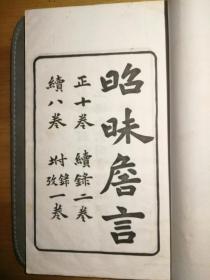 昭昧詹言
正十卷 續錄二卷
續八卷 坿錄攷一卷